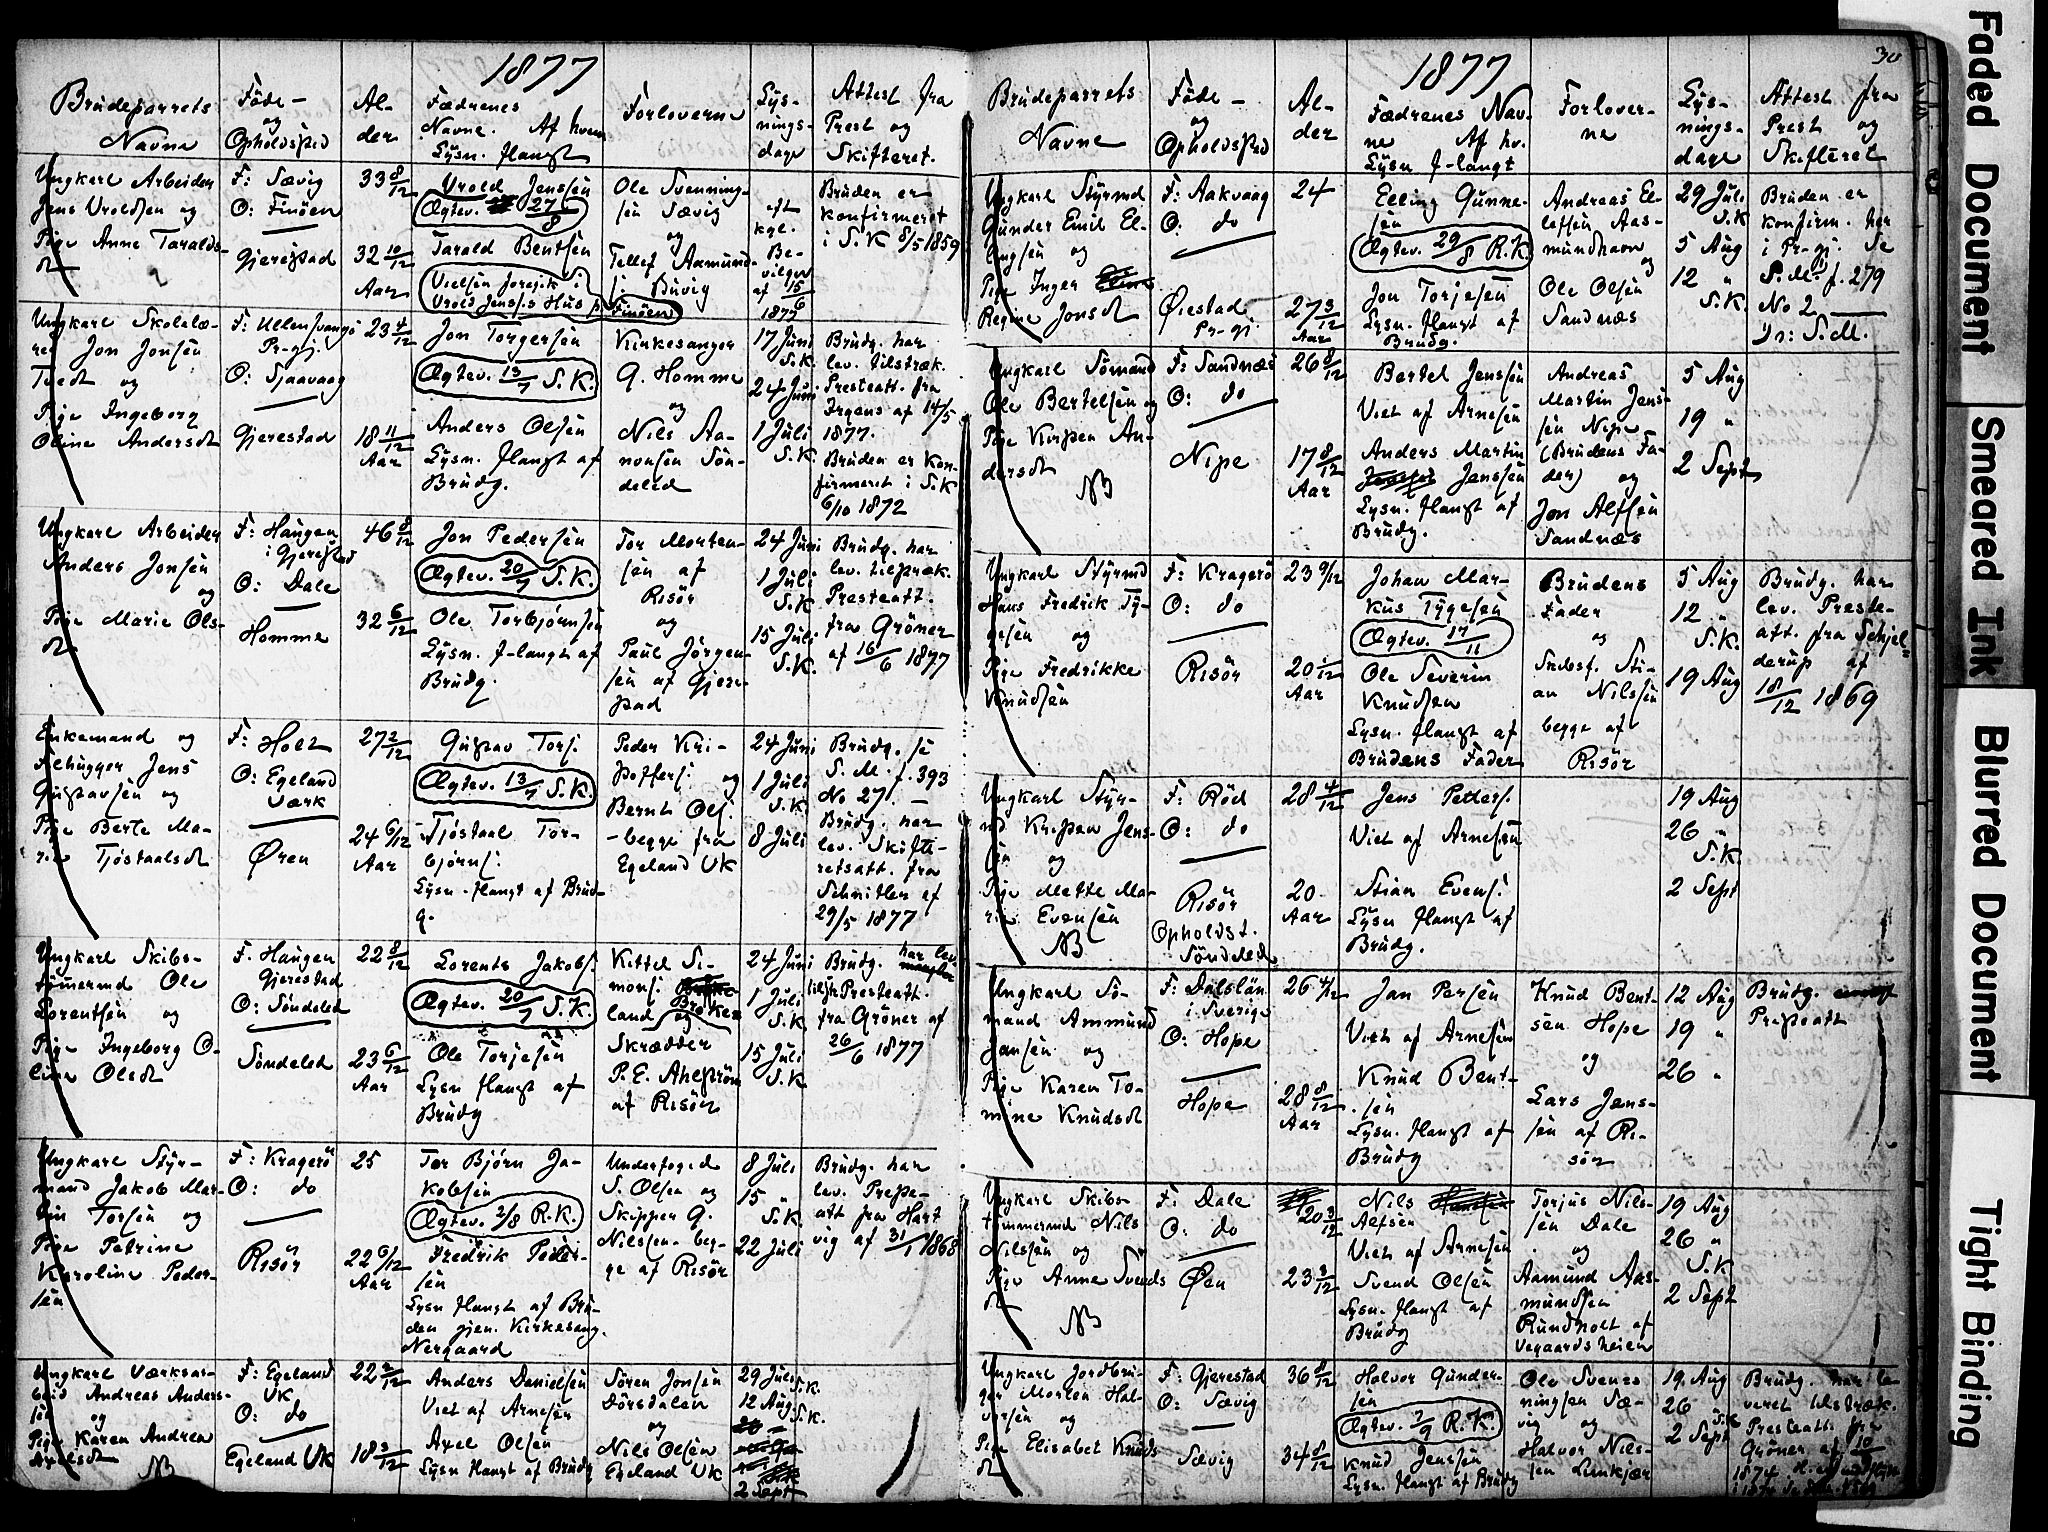 1877
Brudeparrets
Navne
Føde-
og
Opholdssted
Al-
der
Fædrenes
Navne. Af hvem
Lysn. flangt
Forloverne
Lys-
nings-
dage
Attest fra
Prest og
Skifteret.
Ungkarl Arbeider
Jens Vroldsen og
Pige Anne Taralds-
dt
F: Sævig
O: Finöen
Gjerestad
33 8/12
32 10/12
Aar
Vrold Jenssen
Ægtev. 27/8
Tarald Bentsen
Vielsen foregik i
Vrold Jensens Hus p. Finöen
Ole Svenning-
sen Sævig
og
Tellef Aamund-
s. Buvig
eft
kgl.
Be-
vilgn
af 15/6
1877
Bruden er
konfirmeret
i S.K 8/5 1859
Ungkarl Skolelæ-
rer Jon Jonsen
Tvedt og
Pige Ingeborg
Oline Andersdt
F: Ullensvangs
Pr-gj.
O: Sjaavaag
Gjerestad
23 4/12
18 11/12
Aar
Jon Torgersen
Ægtev. 13/7 S.K.
Anders Olsen
Lysn. flangt af
Brudg.
Kirkesanger
G. Homme
og
Nils Aa-
nonsen Sön-
deled
17 Juni
S.K.
24 Juni
1 Juli
S.K
Brudg. har
lev. tilstræk.
Presteatt. fra
Irgens af 14/5
1877.
Bruden er kon-
firmeret i S.K
6/10 1872
Ungkarl Arbeider
Anders Jonsen
og
Pige Marie Ols-
dt
F: Haugen
i Gjerestad
O: Dale
Homme
46 8/12
32 6/12
Jon Pedersen
Ægtev. 20/7 S.K.
Ole Torbjörnsen
Lysn. f-langt af
Brudg.
Tor Morten-
sen af
Risör
og
Paul Jörgen-
sen af Gjere-
stad
24 Juni
1 Juli
S.K
15 Juli
S.K.
Brudg. har
lev. tilstræk.
Presteatt.
fra Gröner
af 16/6 1877
Enkemand og
Felhugger Jens
Gustavsen og
Pige Berte Ma-
rie Tjöstaalsdt
F: Holt
O: Egeland
Værk
Øren
27 2/12
24 6/12
Aar
Gustav Tors.
Ægtev. 13/7 S.K.
Tjöstaal Tor-
björns.
Lysn. flangt af Brud-
g.
Peder Kri-
stoffers. og
Bernt Ols.
-begge fra
Egeland Vk
24 Juni
1 Juli
S.K
8 Juli
Brudg. se
S. M. f. 393
No 27. -
Brudg. har
lev. Skifte-
retsatt. fra
Schnitler af
29/5 1877
Ungkarl Skibs-
tömermd Ole
Lorentsen og
Pige Ingeborg O-
line Olsdt
F. Haugen
Gjerestad
O: Söndeled
Söndeled
22 8/12
23 6/12
Aar
Lorents Jakobs.
Ægtev. 20/7 S.K.
Ole Torjesen
Lysn flangt af
Brudg
Kittel Si-
mons. Brøke-
land og
Skrædder
P. E. Ahlström
af Risör
24 Juni
1 Juli
S.K
15 Juli
S.K
Brudg. har lev
tilstr. Presteatt.
fra Gröner af
26/6 1877
Ungkarl Styr-
mand Jakob Mar-
tin Torsen og
Pige Petrine
Karoline Peder-
sen
F: Kragerö
O: do
Risör
25
22 6/12
Aar
Tor Bjørn Ja-
kobsen
Ægtev. 2/8 R.K.
Fredrik Peder-
sen
Lysn flangt af Bru-
den gjen. Kirkesang.
Nergaard
Underfoged
S. Olsen og
Skipper G.
Nilssen- beg-
ge af Risör
8 Juli
15 "
S.K.
22 Juli
Brudg. har
lev. Preste-
att fra Hart
vig af 31/1 1868
Ungkarl Værksar-
beid Andreas Anders-
sen og
Pige Karen Andrea
Axelsdt NB
F: Egeland
Vk
O: do
Egeland Vk
22 2/12
18 3/12
Anders Danielsen
Viet af Arnesen
Axel Olsen
Lysn flangt af Brudg
Sören Jonsen
Dörsdalen
og
Nils Olsen
Egeland Vk
29 Juli S.K.
12 Aug S.K.
2 Sept
30
1877
Brudeparrets
Navne
Føde-
og
Opholdssted
Al-
der
Fædrenes Nav-
ne Af hv.
Lysn f-langt
Forlover-
ne
Lys-
nings-
dage
Attest fra
Prest og
Skifteret
Ungkarl Styrmd
Gunder Emil El-
lingsen og
Pige Inger
Regine Jonsdt
F: Aakvaag
O: do
Øiestad
Pr-gj.
24
27 3/12
Aar
Elling Gunne-
sen
Ægtev. 29/8 R.K.
Jon Torjesen
Lysn. flangt af
Brudg.
Andreas El-
lefsen Aas-
mundhavn
og
Ole Olsen
Sandnæs
29 Juli
S.K
5 Aug
12 "
S.K.
Bruden er
konfirm. her
i Pr-gj. Se
S.M. f. 279
No 2
In: S.M.
Ungkarl Sömand
Ole Bertelsen og
Pige Kirsten An-
dersdt
NB
F: Sandnæs
O: do
Nipe
26 8/12
17 8/12
Aar
Bertel Jenssen
Viet af Arnesen
Anders Martin
Jenssen
Lysn. flangt af
Brudg.
Andreas
Martin Jens-
sen Nipe
(Brudens Fa-
der) og
Jon Alfsen
Sandnæs
5 Aug
19 "
2 Sept
Ungkarl Styrmd
Hans Fredrik Ty-
gesen og
Pige Fredrikke
Knudsen
F: Kragerö
O: do
Risör
23 9/12
20 1/12
Aar
Johan Mar-
kus Tygesen
Ægtev. 17/11
Ole Severin
Knudsen
Lysn. flangt af
Brudens Fader
Brudens
Fader
og
Sti-
an Nilssen
begge af
Risör
5 Aug
12 "
S.K.
19 Aug
Brudg. har
lev. Preste-
att. fra Schjel-
derup af
18/12 1869
Ungkarl Styr-
md Kristen Jens-
sen og
Pige Mette Ma-
rie Evensen
NB
F: Röd
O: do
Risör
Opholdst.
Söndeled
28 4/12
20
Aar
Jens Petters.
Viet af Arnesen
Stian Evens.
Lysn flangt af
Brudg.
19 Aug
26 "
S.K.
2 Sept
Ungkarl Sö-
mand Ammund
Jansen og
Pige Karen To-
mine Knudsdt
F: Dalslan
i Sverige
O: Hope
Hope
26 4/12
28 8/12
Aar
Jan Persen
Viet af Arnesen
Knud Bent-
sen
Lysn. flangt af
Brudg
Knud Bent-
sen Hope
og
Lars Jens-
sen af Ri-
sör
12 Aug
19 "
26 "
Brudg.
Presteatt
Ungkarl Skibs-
tømmermd Nils
Nilssen og
Pige Anne Svends
dt
NB
F: Dale
O: do
Øen
20 3/12
23 3/12
Nils
Alfsen
Viet af Arnesen
Svend Olsen
Lysn. flangt af
Brudg
Torjus Nils-
sen Dale
og
Aamund Aas-
mundsen
Rundholt af
Vegaardsheien
19 Aug
26 "
S.K
2 Sept
Ungkarl Jordbru-
ger Morten Hal-
vorsen og
Pige Elisabet Knuds
dt
F: Gjerestad
O: Sævig
Sævig
36 8/12
34 8/12
Halvor Gunder-
sen
Ægtev. 7/9 R.K.
Knud Jenssen
Lysn. flangt af Brudg
Ole Svenni-
ningsen Sæ-
vig og
Halvor Nils-
sen Lunkjær
19 Aug
26 "
S.K
2 Sept
Brudg. har le-
veret tilstræk.
Presteatt. fra
Gröner af 10/
1874.
Faded Document
Smeared Ink
Blurred Document
Tight Binding